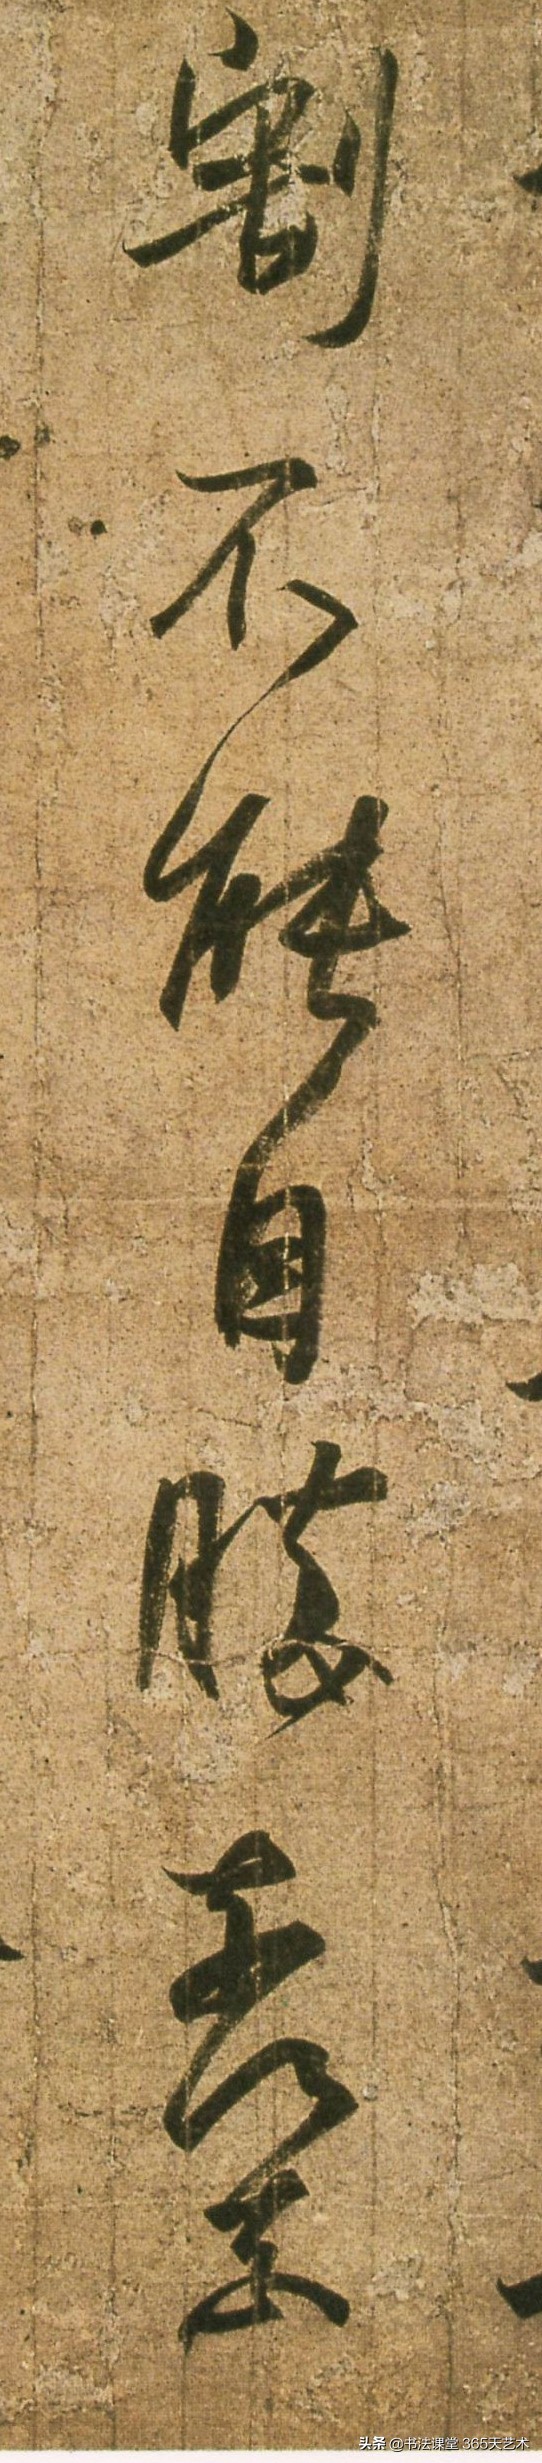 割不能自勝奈何奈
头条 @书法课堂 365天艺术